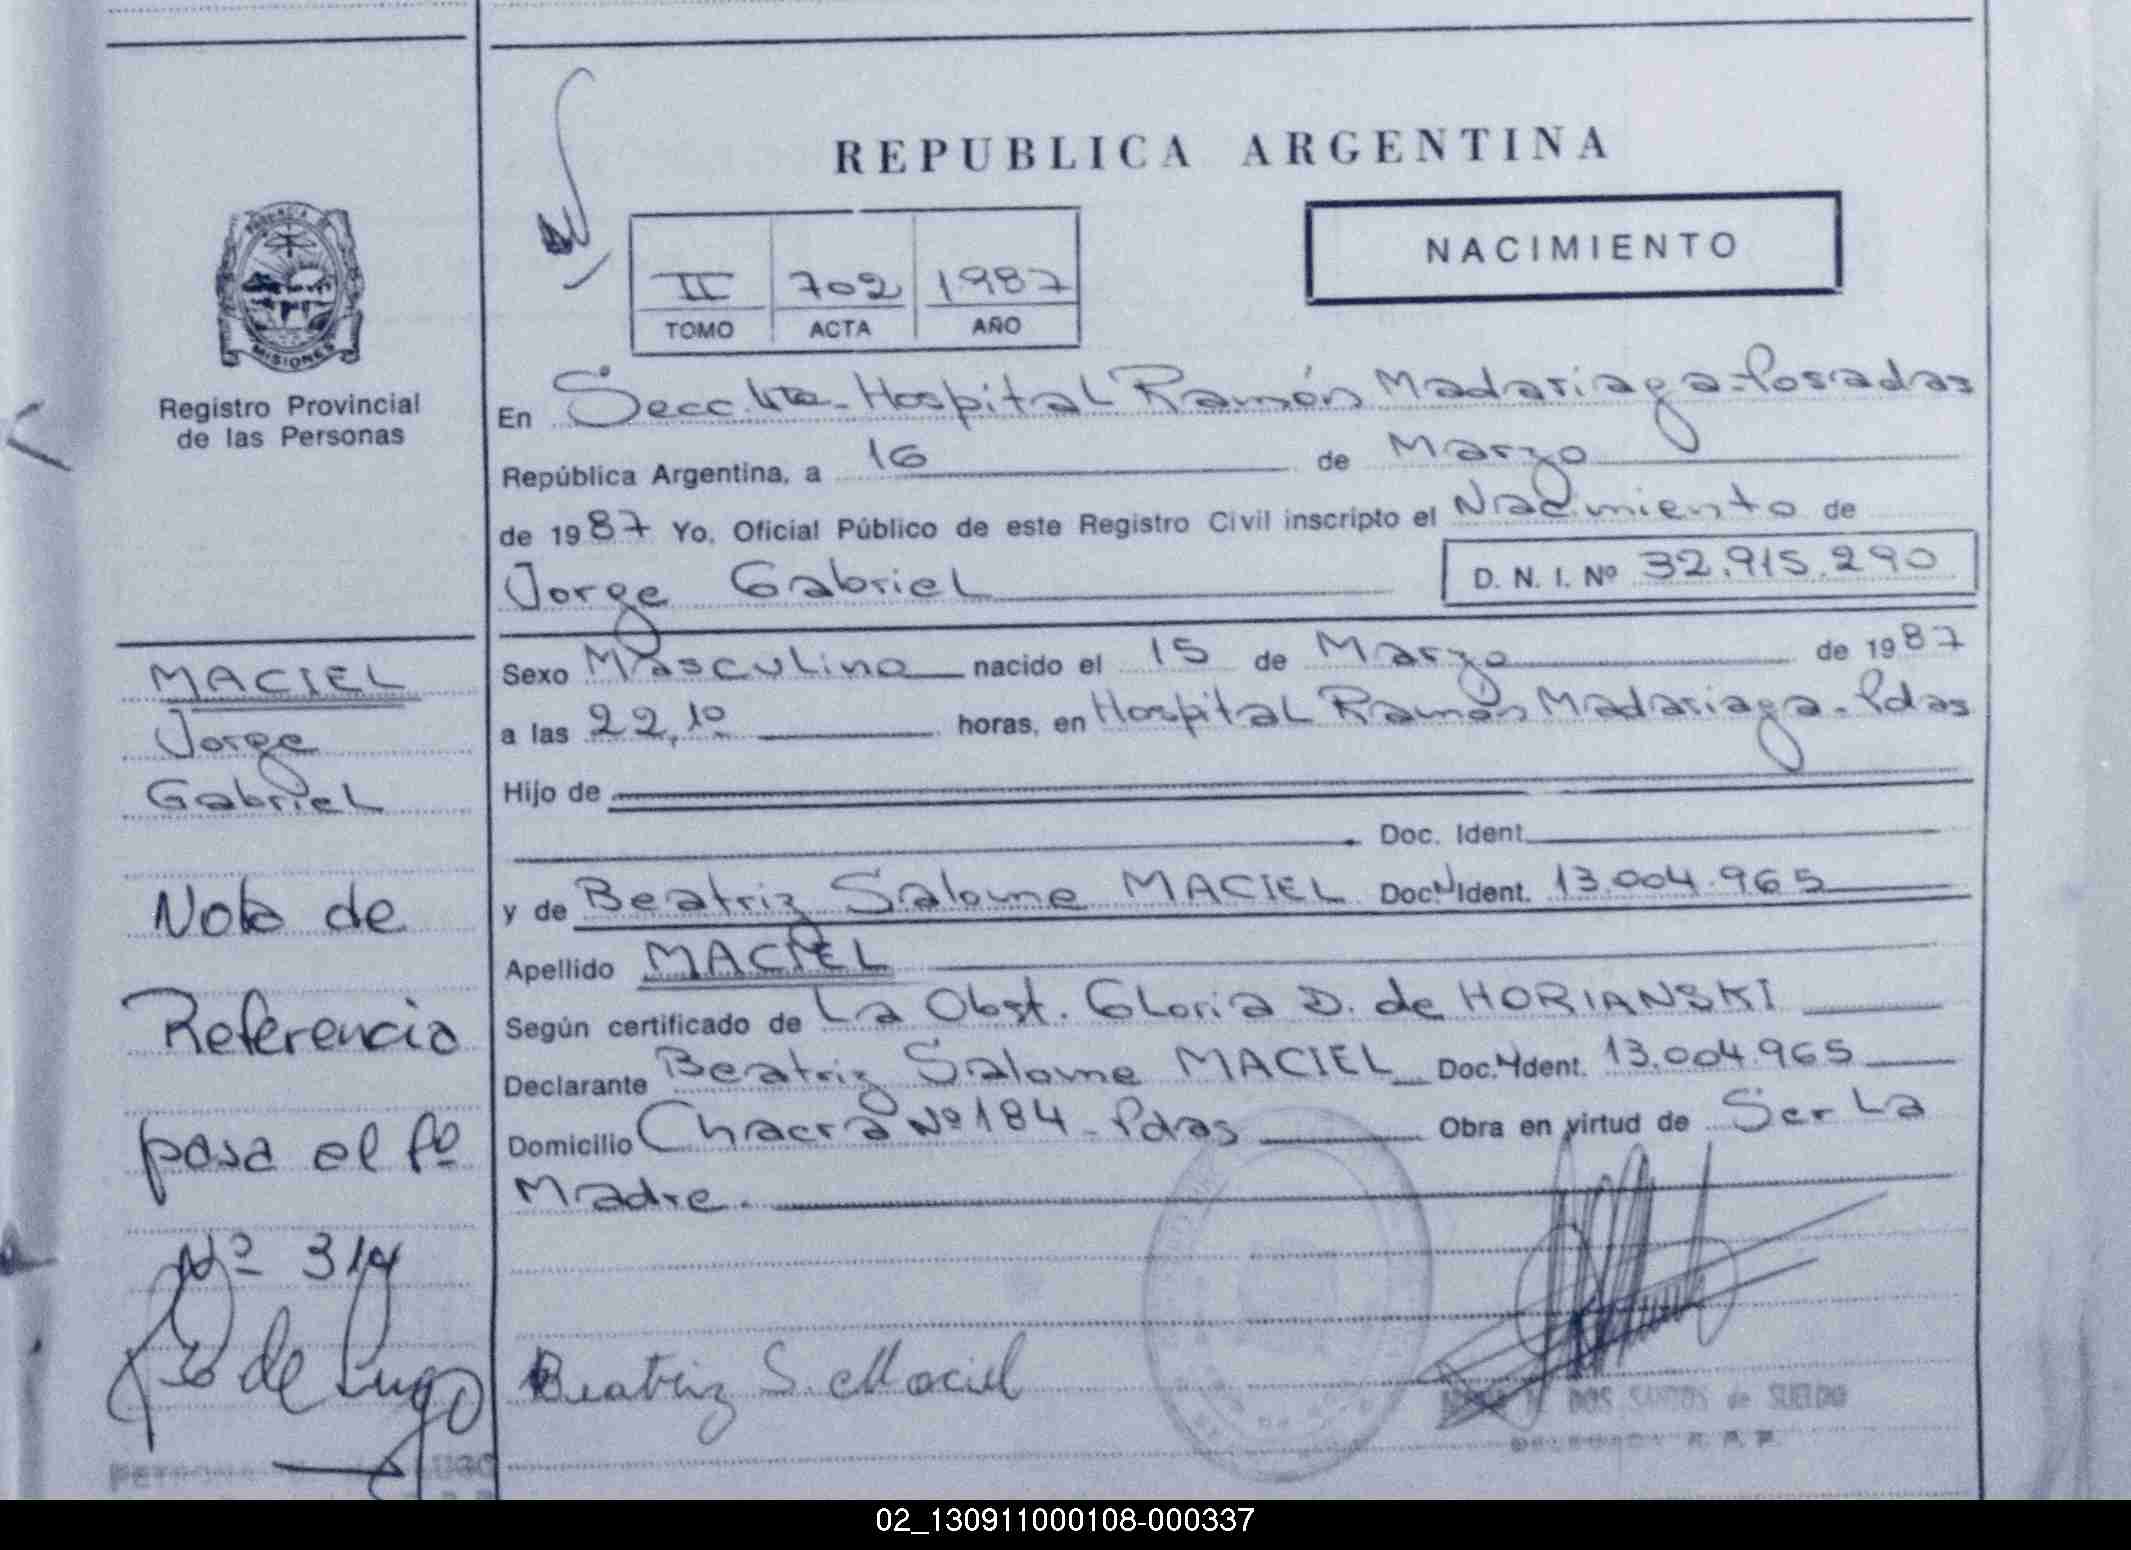 REPUBLICA ARGENTINA
NACIMIENTO
II 702 1987
TOMO ACTA AÑO
PROVINCIA DE
MISIONES
Registro Provincial
de las Personas
En Secc. 4ta - Hospital Ramón Madariaga - Posadas
República Argentina, a 16 de Marzo
de 1987 Yo, Oficial Público de este Registro Civil inscripto el Nacimiento de
Jorge Gabriel D. N. I. Nº 32.915.290
Sexo Masculino nacido el 15 de Marzo de 1987
a las 22,10 horas, en Hospital Ramón Madariaga - Pdas
Hijo de
Doc. Ident.
y de Beatriz Salome MACIEL Doc. N Ident. 13.004.965
Apellido MACIEL
Según certificado de La Obst. Gloria D. de HORIANSKI
Declarante Beatriz Salome MACIEL Doc. N Ident. 13.004.965
Domicilio Chacra Nº 184 - Pdas Obra en virtud de Ser La
Madre.
Beatriz S. Maciel
DOS SANTOS de SUELDO
DELEGADA R. P. P.
MACIEL
Jorge
Gabriel
Nota de
Referencia
pasa el fº
Nº 314
de Lugo
PETRONA LUGO
02_130911000108-000337